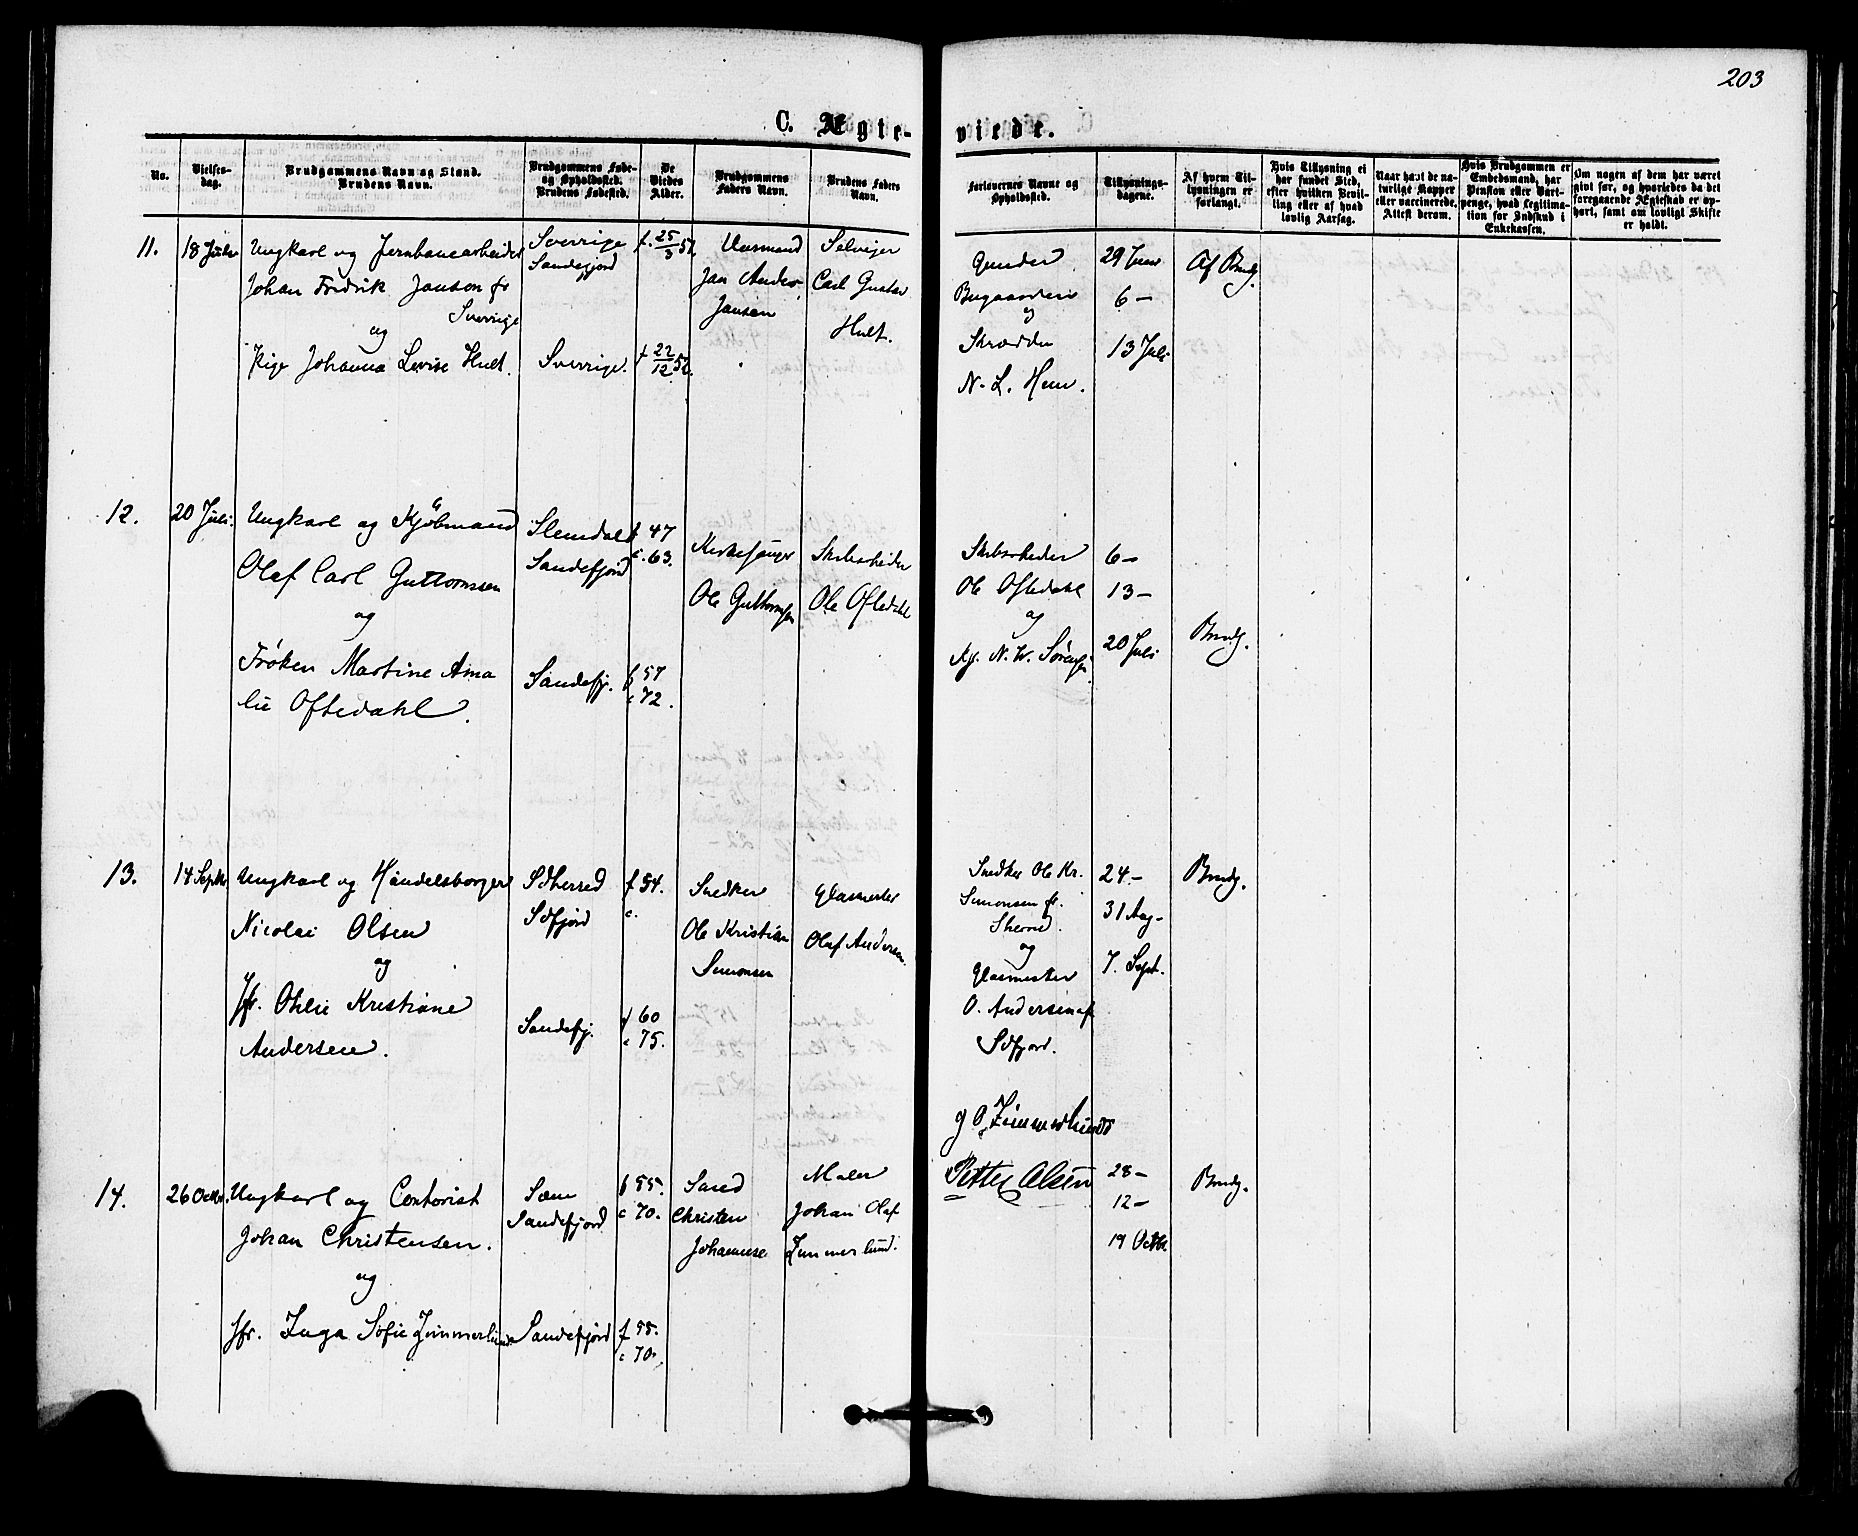 203
C. Ægte-
viede.
No.
Vielses-
dag.
Brudgommens Navn og Stand.
Brudens Navn.
Brudgommens Føde-
og Opholdssted.
Brudens Fødested.
De
Viedes
Alder.
Brudgommens
Faders Navn.
Brudens Faders
Navn.
Forlovernes Navne og
Opholdssted.
Tillysnings-
dagene.
Af hvem Til-
lysningen er
forlangt.
Hvis Tillysning ei
har fundet Sted,
efter hvilken Bevil-
ling eller af hvad
lovlig Aarsag.
Naar havt de na-
turlige Kopper
eller vaccinerede,
Attest derom.
Hvis Brudgommen er
Embedsmand, har
Pension eller Vart-
penge, hvad Legitima-
tion for Indskud i
Enkekassen.
Om nogen af dem har været
gift før, og hvorledes da det
foregaaende Ægteskab er op-
hørt, samt om lovligt Skifte
er holdt.
11.
18 Juli
Ungkarl og Jernbanearbeider
Johan Fredrik Janson fr
Sverrige
og
Pige Johanna Levise Hult.
Sverrige
Sandefjord
Sverrige.
f. 25/3 52
f 22/12 52.
Jan Anders
Jansen
Selveier
Carl Gustav
Hult.
Gunder
Bugaarden
og
Skrædder
N. L. Hem.
29 Juni
6 –
13 Juli
Af Brudg.
12.
20 Juli.
Ungkarl og Kjøbmand
Olaf Carl Guttormsen
og
Frøken Martine Ama
lie Oftedahl.
Slemdal
Sandefjord
Sandefj.
f 47
c. 63.
f 57
c 72.
Kirkesanger
Ole Guttormsen
Skibsarbeider
Ole Oftedahl
Skibsarbeider
Ole Oftedahl
og
Kj. N. W. Sørensen
6 –
13 –
20 Juli
Brudg.
13.
14 Septbr
Ungkarl og Handelsborger
Nicolai Olsen
og
Jfr. Othlie Kristiane
Andersen.
Sdherred
Sdfjord
Sandefj.
f 54.
c.
f 60
c 75.
Snedker
Ole Kristian
Simonsen
Glasmester
Olaf Andersen.
Snedker Ole Kr.
Simonsen fr.
Sherred.
og
Glasmester
O. Andersen af
Sdfjord.
24 –
31 Aug –
7. Sept.
Brudg.
14.
26 Octbr.
Ungkarl og Contorist
Johan Christensen.
og
Jfr. Inga Sofie Zimmerlund
Sandefjord
Sandefjord
f 55.
c 70.
f 55.
c 70.
Christen
Johannese
Maler
Johan Olaf
Zimmerlund.
J O Zimmerlund
Petter Olsen
28 –
12 –
19 Octbr.
Brudg.